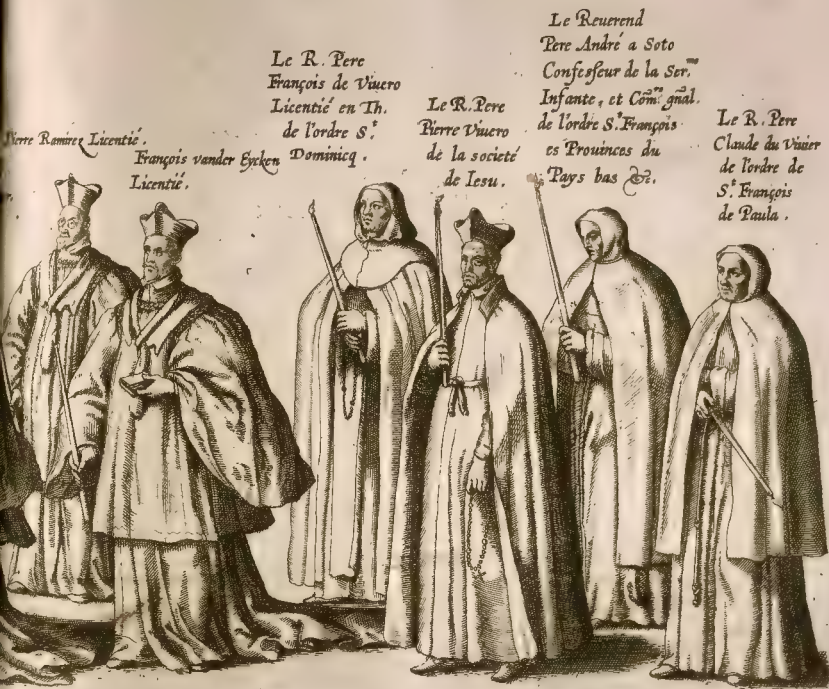 Pierre Ramirez Licentié.
François vander Eycken
Licentié.
Le R. Pere
François de Viuero
Licentié en Th.
de l'ordre S.t
Dominicq.
Le R. Pere
Pierre Viuero
de la societé
de Iesu.
Le Reuerend
Pere André a Soto
Confesseur de la Ser.me
Infante, et Com.re gñal.
de l'ordre S.t François
es Prouinces du
Pays bas &c.
Le R. Pere
Claude du Viuier
de l'ordre de
S.t François
de Paula.